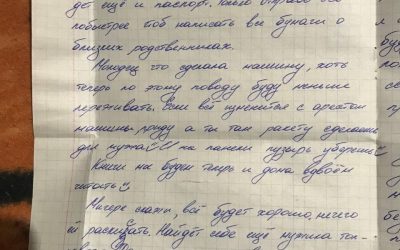 дет ещё и паспорт. Только отправь его
побыстрее чтоб написать все бумаги о
близких родственниках.
Молодец что сделала машину, хоть
теперь по этому поводу буду меньше
переживать. Если всё изменится с арестом
машины приду а ты там ракету сделаешь
для мужа на панели пузырь уберешь
Книги на будем теперь и дома вдвоём
читать
Матери скажи, всё будет хорошо, нечего
ей раскисать. Найдёт себе ещё мужика